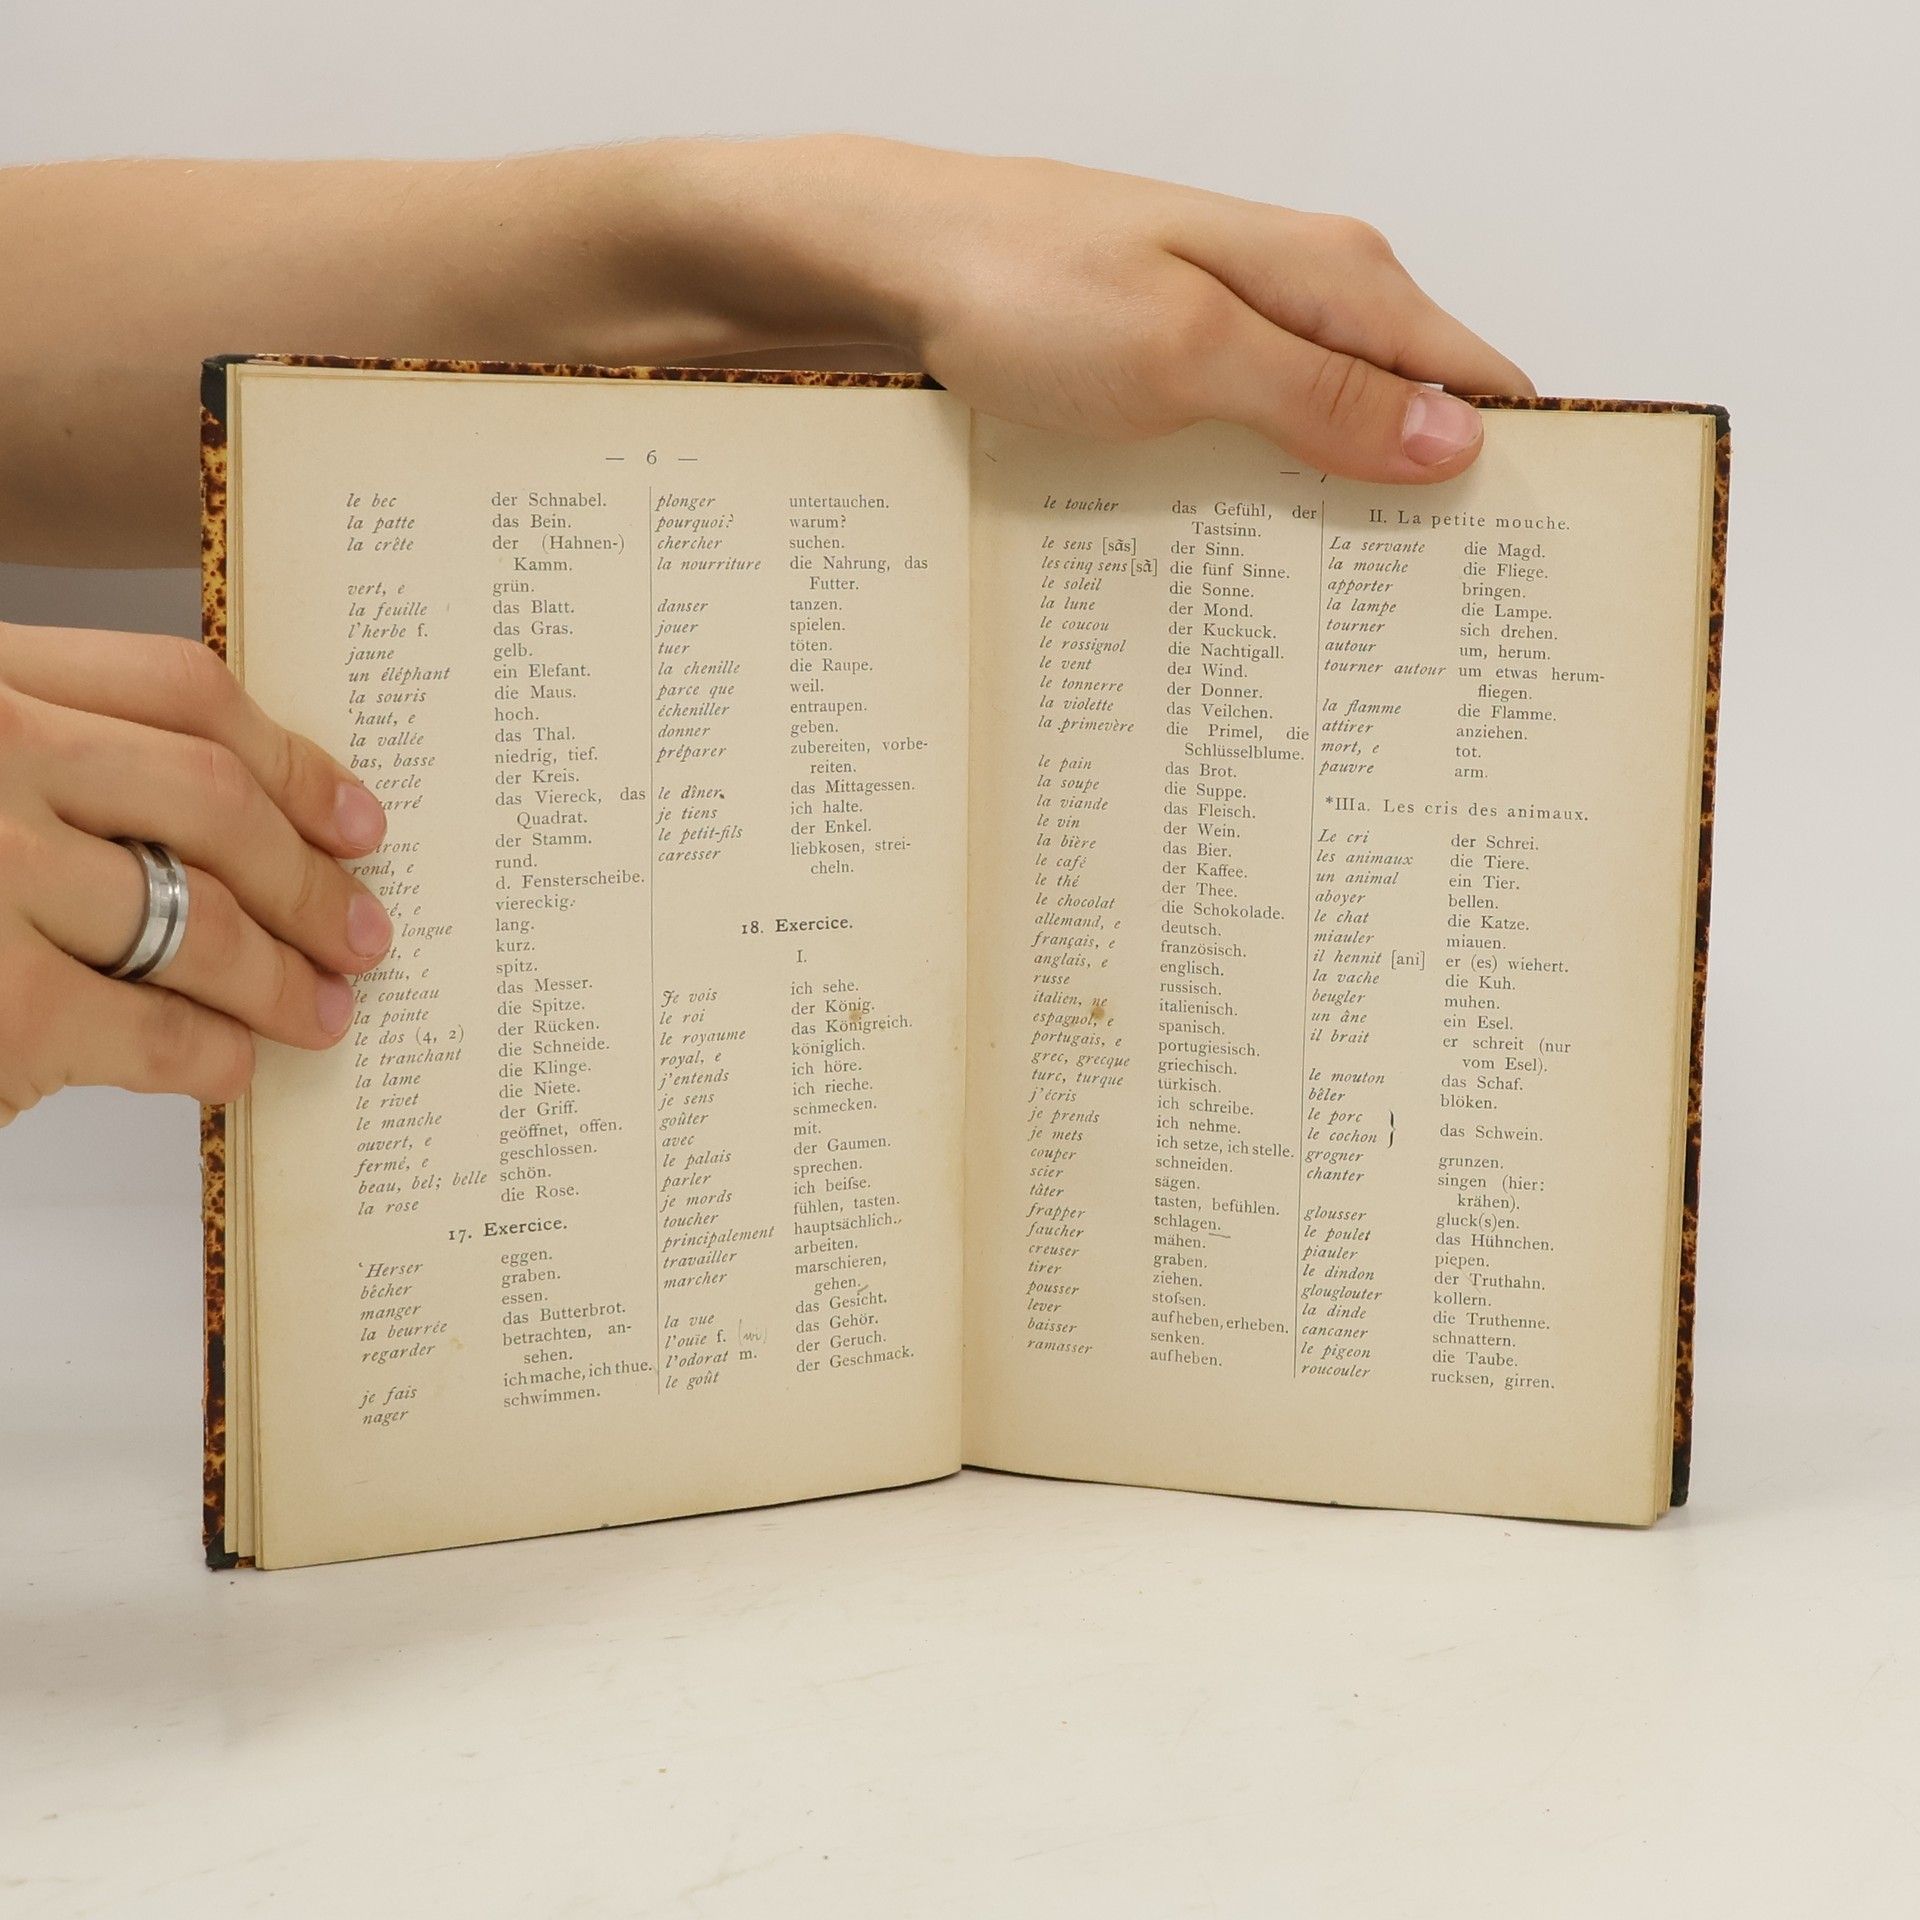 — 6 —
le bec der Schnabel.
la patte das Bein.
la crête der (Hahnen-)
Kamm.
vert, e grün.
la feuille das Blatt.
l'herbe f. das Gras.
jaune gelb.
un éléphant ein Elefant.
la souris die Maus.
'haut, e hoch.
la vallée das Thal.
bas, basse niedrig, tief.
cercle der Kreis.
das Viereck, das
Quadrat.
der Stamm.
rond, e rund.
vitre d. Fensterscheibe.
viereckig.
longue lang.
kurz.
pointu, e spitz.
le couteau das Messer.
la pointe die Spitze.
le dos (4, 2) der Rücken.
le tranchant die Schneide.
la lame die Klinge.
le rivet die Niete.
le manche der Griff.
ouvert, e geöffnet, offen.
fermé, e geschlossen.
beau, bel; belle schön.
la rose die Rose.
17. Exercice.
'Herser eggen.
bêcher graben.
manger essen.
la beurrée das Butterbrot.
regarder betrachten, an-
sehen.
je fais ich mache, ich thue.
nager schwimmen.
plonger untertauchen.
pourquoi? warum?
chercher suchen.
la nourriture die Nahrung, das
Futter.
danser tanzen.
jouer spielen.
tuer töten.
la chenille die Raupe.
parce que weil.
écheniller entraupen.
donner geben.
préparer zubereiten, vorbe-
reiten.
le dîner das Mittagessen.
je tiens ich halte.
le petit-fils der Enkel.
caresser liebkosen, strei-
cheln.
18. Exercice.
I.
Je vois ich sehe.
le roi der König.
le royaume das Königreich.
royal, e königlich.
j'entends ich höre.
je sens ich rieche.
goûter schmecken.
avec mit.
le palais der Gaumen.
parler sprechen.
je mords ich beifse.
toucher fühlen, tasten.
principalement hauptsächlich.
travailler arbeiten.
marcher marschieren,
gehen.
la vue das Gesicht.
l'ouïe f. das Gehör.
l'odorat m. der Geruch.
le goût der Geschmack.
le toucher das Gefühl, der
Tastsinn.
le sens [sãs] der Sinn.
les cinq sens [sã] die fünf Sinne.
le soleil die Sonne.
la lune der Mond.
le coucou der Kuckuck.
le rossignol die Nachtigall.
le vent der Wind.
le tonnerre der Donner.
la violette das Veilchen.
la primevère die Primel, die
Schlüsselblume.
le pain das Brot.
la soupe die Suppe.
la viande das Fleisch.
le vin der Wein.
la bière das Bier.
le café der Kaffee.
le thé der Thee.
le chocolat die Schokolade.
allemand, e deutsch.
français, e französisch.
anglais, e englisch.
russe russisch.
italien, ne italienisch.
espagnol, e spanisch.
portugais, e portugiesisch.
grec, grecque griechisch.
turc, turque türkisch.
j'écris ich schreibe.
je prends ich nehme.
je mets ich setze, ich stelle.
couper schneiden.
scier sägen.
tâter tasten, befühlen.
frapper schlagen.
faucher mähen.
creuser graben.
tirer ziehen.
pousser stofsen.
lever aufheben, erheben.
baisser senken.
ramasser aufheben.
II. La petite mouche.
La servante die Magd.
la mouche die Fliege.
apporter bringen.
la lampe die Lampe.
tourner sich drehen.
autour um, herum.
tourner autour um etwas herum-
fliegen.
la flamme die Flamme.
attirer anziehen.
mort, e tot.
pauvre arm.
*IIIa. Les cris des animaux.
Le cri der Schrei.
les animaux die Tiere.
un animal ein Tier.
aboyer bellen.
le chat die Katze.
miauler miauen.
il hennit [ani] er (es) wiehert.
la vache die Kuh.
beugler muhen.
un âne ein Esel.
il brait er schreit (nur
vom Esel).
le mouton das Schaf.
bêler blöken.
le porc
le cochon } das Schwein.
grogner grunzen.
chanter singen (hier:
krähen).
glousser gluck(s)en.
le poulet das Hühnchen.
piauler piepen.
le dindon der Truthahn.
glouglouter kollern.
la dinde die Truthenne.
cancaner schnattern.
le pigeon die Taube.
roucouler rucksen, girren.